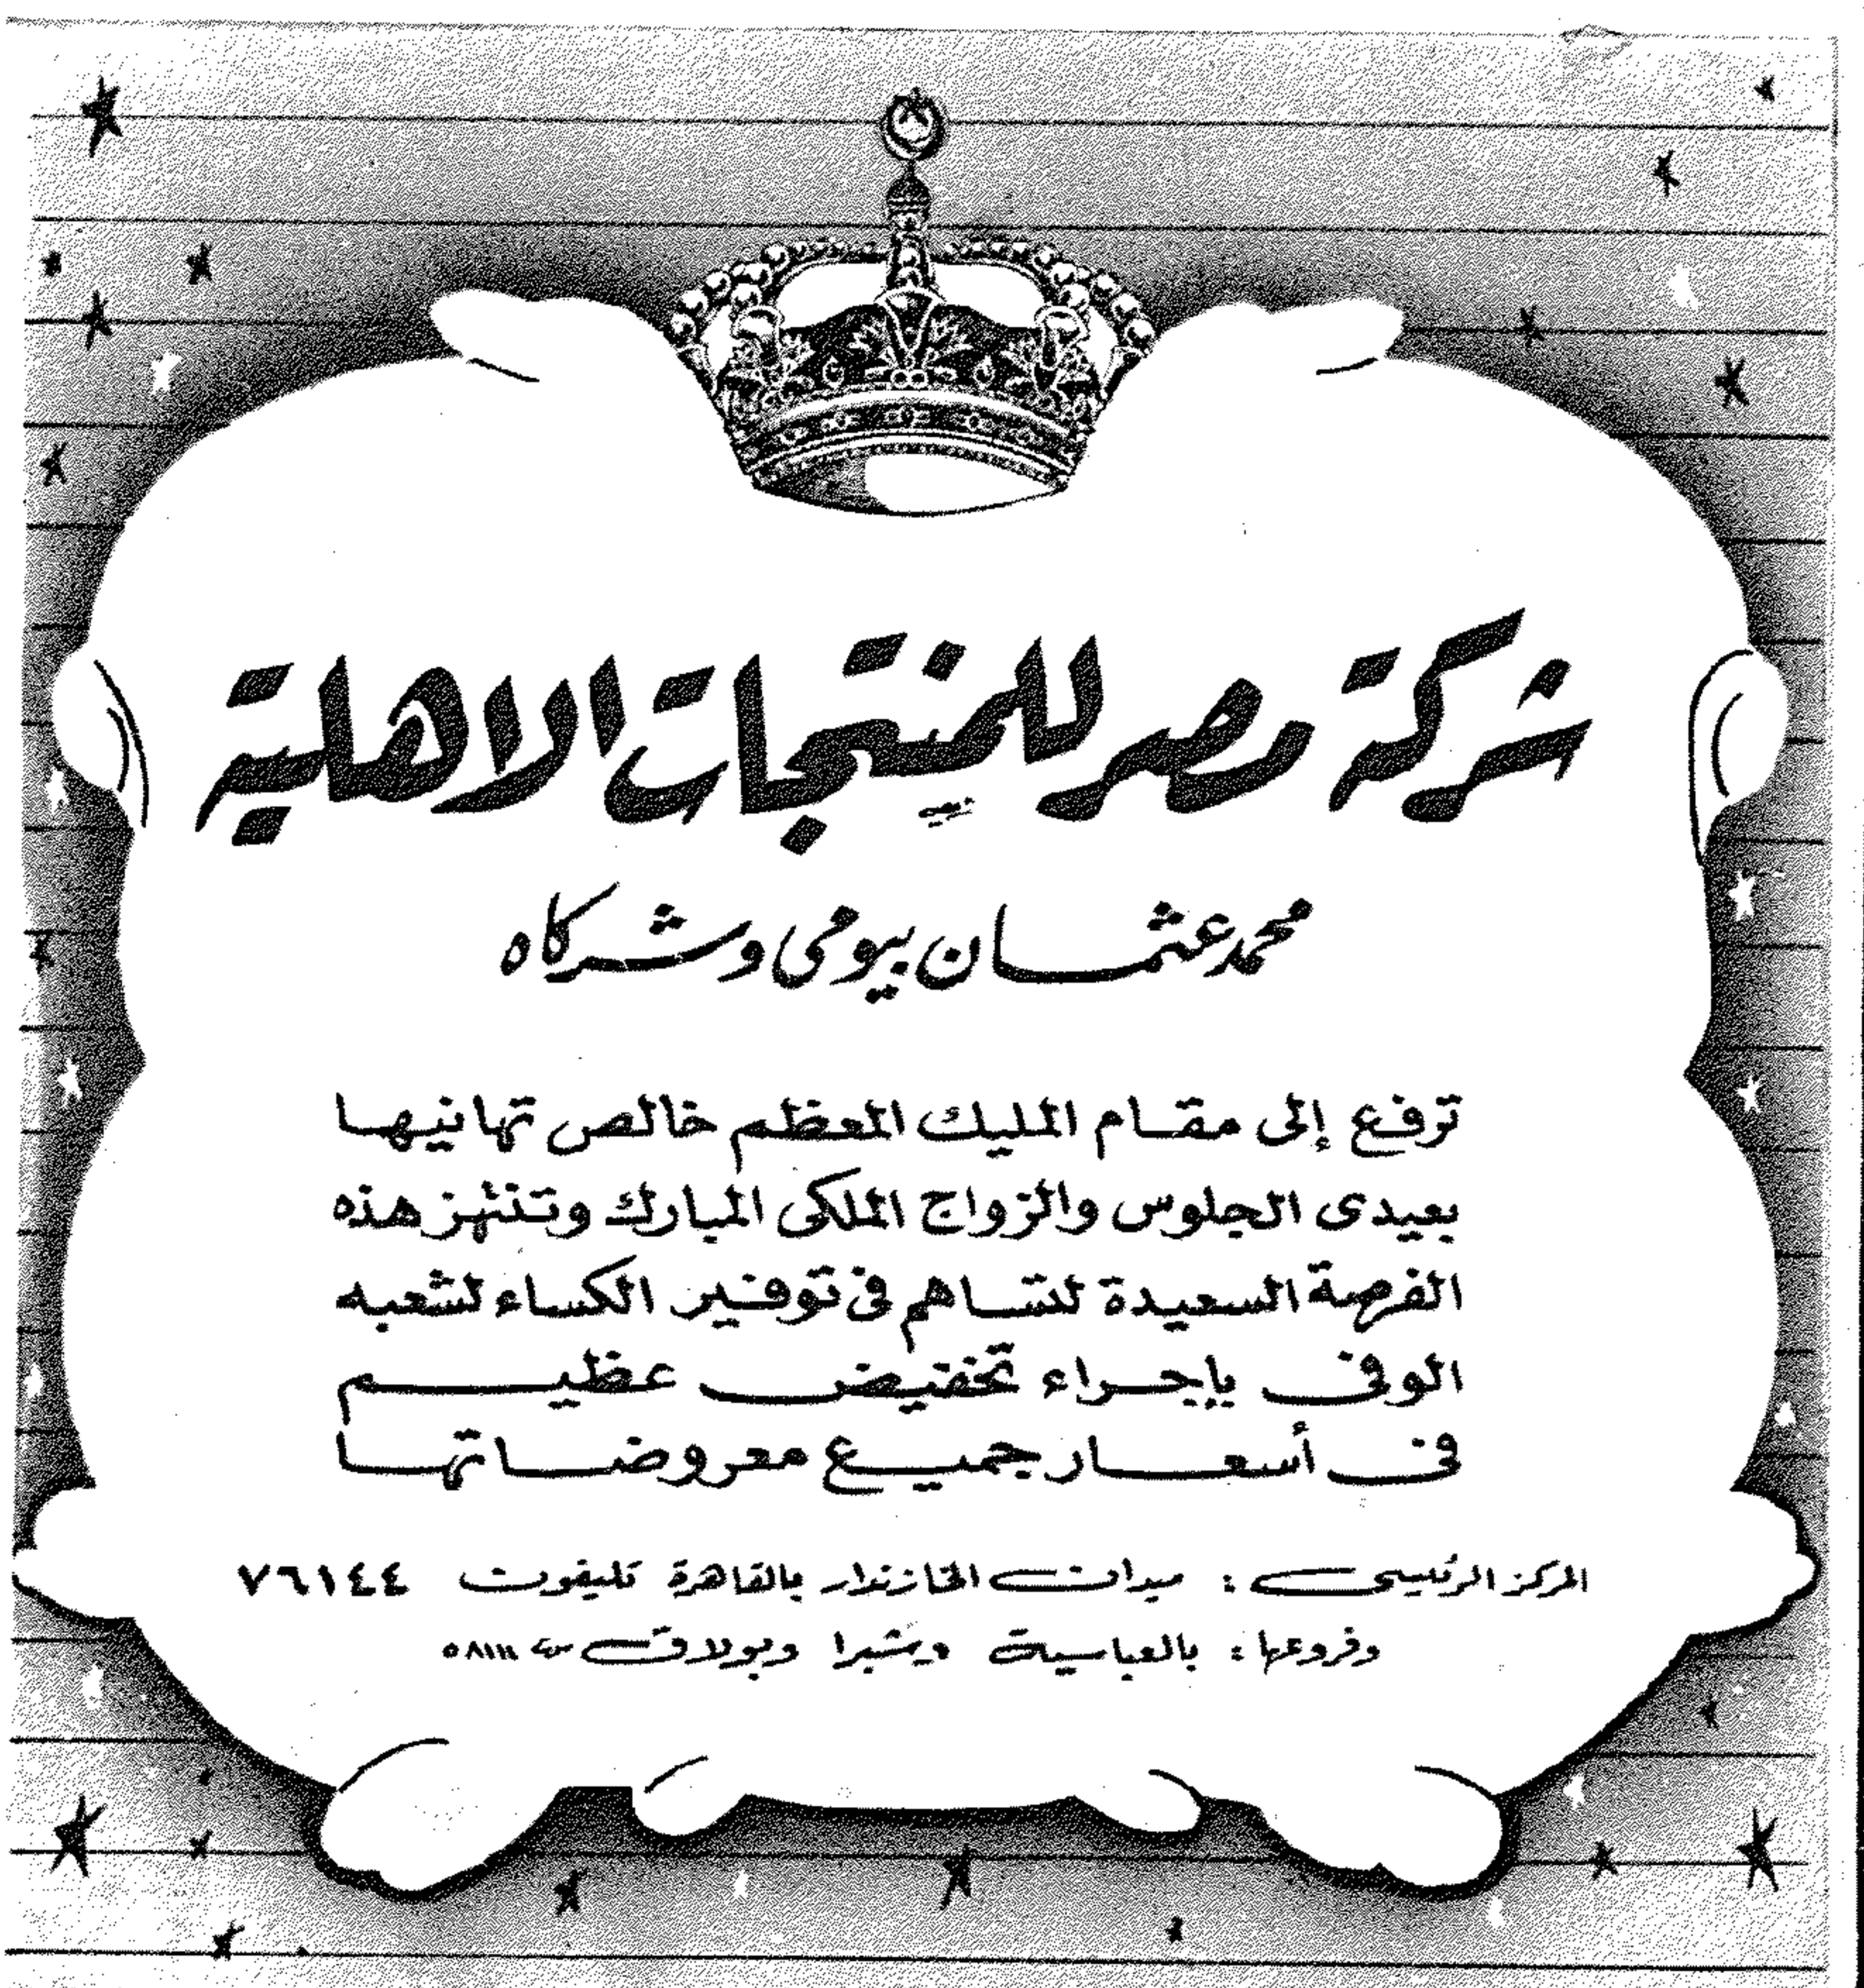 شركة مصر للمنتجات الاهلية
محمد عثمان بيومى وشركاه
ترفع إلى مقام المليك المعظم خالص تهانيها
بعيدى الجلوس والزواج الملكى المبارك وتنتهز هذه
الفرصة السعيدة لتساهم فى توفير الكساء لشعبه
الوفى بإجراء تخفيض عظيم
فى أسعار جميع معروضاتها
المركز الرئيسى : ميدان الخازندار بالقاهرة تليفون ٧٦١٤٤
وفروعها : بالعباسية وبشبرا وبولاق س.ت ٥٨١١١